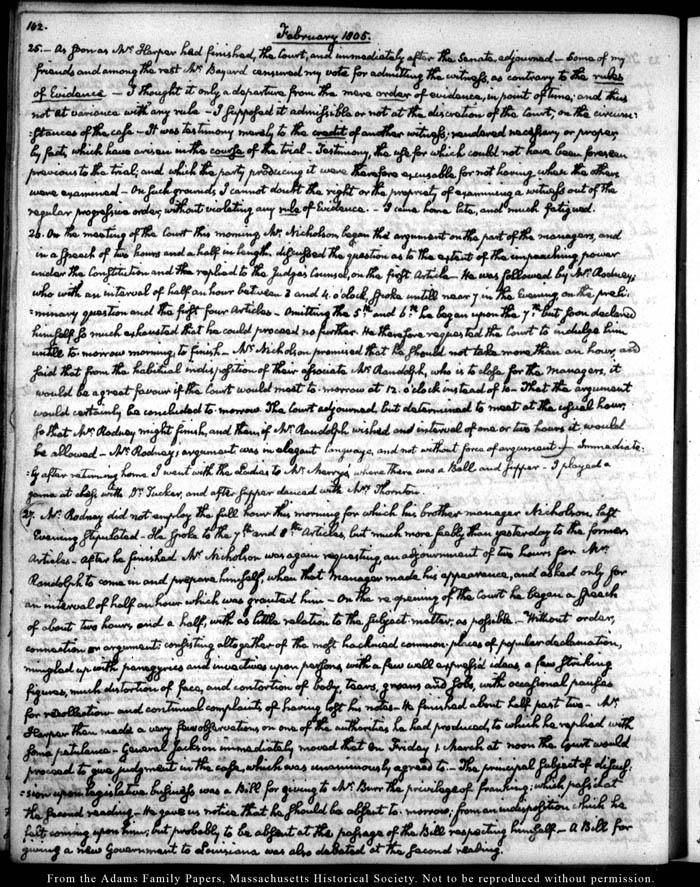 162.
February 1805.
25. – As soon as Mr Harper had finished, the Court, and immediately after the Senate, adjourned – Some of my
friends and among the rest Mr Bayard censured my vote for admitting the witness, as contrary to the rules
of Evidence – I thought it only a departure from the mere order of evidence, in point of time; and thus
not at variance with any rule – I supposed it admissible or not at the discretion of the Court, on the circum:
:stances of the case – It was testimony merely to the credit of another witness; rendered necessary or proper
by facts which have arisen in the course of the trial – Testimony, the use for which could not have been foreseen
previous to the trial; and which the party producing it were therefore excusable for not having, when the others
were examined – On such grounds, I cannot doubt the right or the propriety of examining a witness out of the
regular progressive order, without violating any rule of Evidence. – I came home late, and much fatigued.
26. On the meeting of the Court this morning, Mr Nicholson began the argument on the part of the managers, and
in a speech of two hours and a half in length, discussed the question as to the extent of the impeaching power
under the Constitution and the replied to the Judges Counsel, on the first Article – He was followed by Mr Rodney;
who with an interval of half an hour between 3 and 4. o'clock, spoke untill near 7 in the Evening on the preli:
:minary question and the first four Articles – Omitting the 5th and 6th he began upon the 7th but soon declared
himself so much exhausted that he could proceed no further. He therefore requested the Court to indulge him
untill to-morrow morning, to finish – Mr Nicholson promised that he should not take more than an hour, and
said that from the habitual indisposition of their associate Mr Randolph, who is to close for the managers, it
would be a great favour if the Court would meet to-morrow at 12. o'clock instead of 10 – That the argument
would certainly be concluded to-morrow. The Court adjourned, but determined to meet at the usual hour;
so that Mr Rodney might finish, and then if Mr Randolph wished and interval of one or two hours it would
be allowed – Mr Rodney's argument was in elegant language, and not without force of argument – Immediate:
:ly after returning home I went with the Ladies to Mr Merry's, where there was a Ball and supper – I played a
game at chess with Dr Tucker, and after supper danced with Mrs Thornton.
27. Mr Rodney did not employ the full hour this morning for which his brother manager Nicholson, last
Evening stipulated – He spoke to the 7th and 8th Articles, but much more feebly than yesterday to the former
Articles – After he finished Mr Nicholson was again requesting, an adjournment of two hours for Mr
Randolph to come in and prepare himself, when that manager made his appearance, and asked only for
an interval of half an hour which was granted him – On the re-opening of the Court he began a speech
of about two hours and a half, with as little relation to the subject-matter, as possible – Without order,
connection or argument; consisting altogether of the most hackneyed common-places of popular declamation,
mingled up with panegyrics and invectives upon persons, with a few well expressed ideas, a few striking
figures, much distortion of face, and contortion of body, tears, groans and sobs, with occasional pauses
for recollection and continual complaints of having lost his notes – He finished about half past two – Mr
Harper then made a very few observations on one of the authorities he had produced, to which he replied with
some petulance – General Jackson immediately moved that on Friday 1. March at noon the Court would
proceed to give judgment in the case, which was unanimously agreed to. – The principal subject of discus:
:sion upon legislative business was a Bill for giving to Mr Burr the privilege of franking; which pass'd at
the second reading – He gave us notice that he should be absent to-morrow, from an indisposition which he
felt coming upon him; but probably, to be absent at the passage of the Bill respecting himself – A Bill for
giving a new Government to Louisiana was also debated at the second reading.
From the Adams Family Papers, Massachusetts Historical Society. Not to be reproduced without permission.